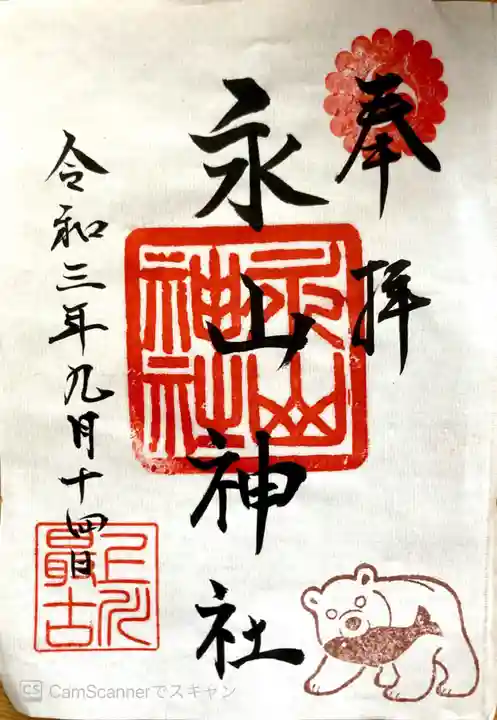 奉拝
永山神社
永山神社
令和三年九月十四日
上川最古
CS CamScannerでスキャン